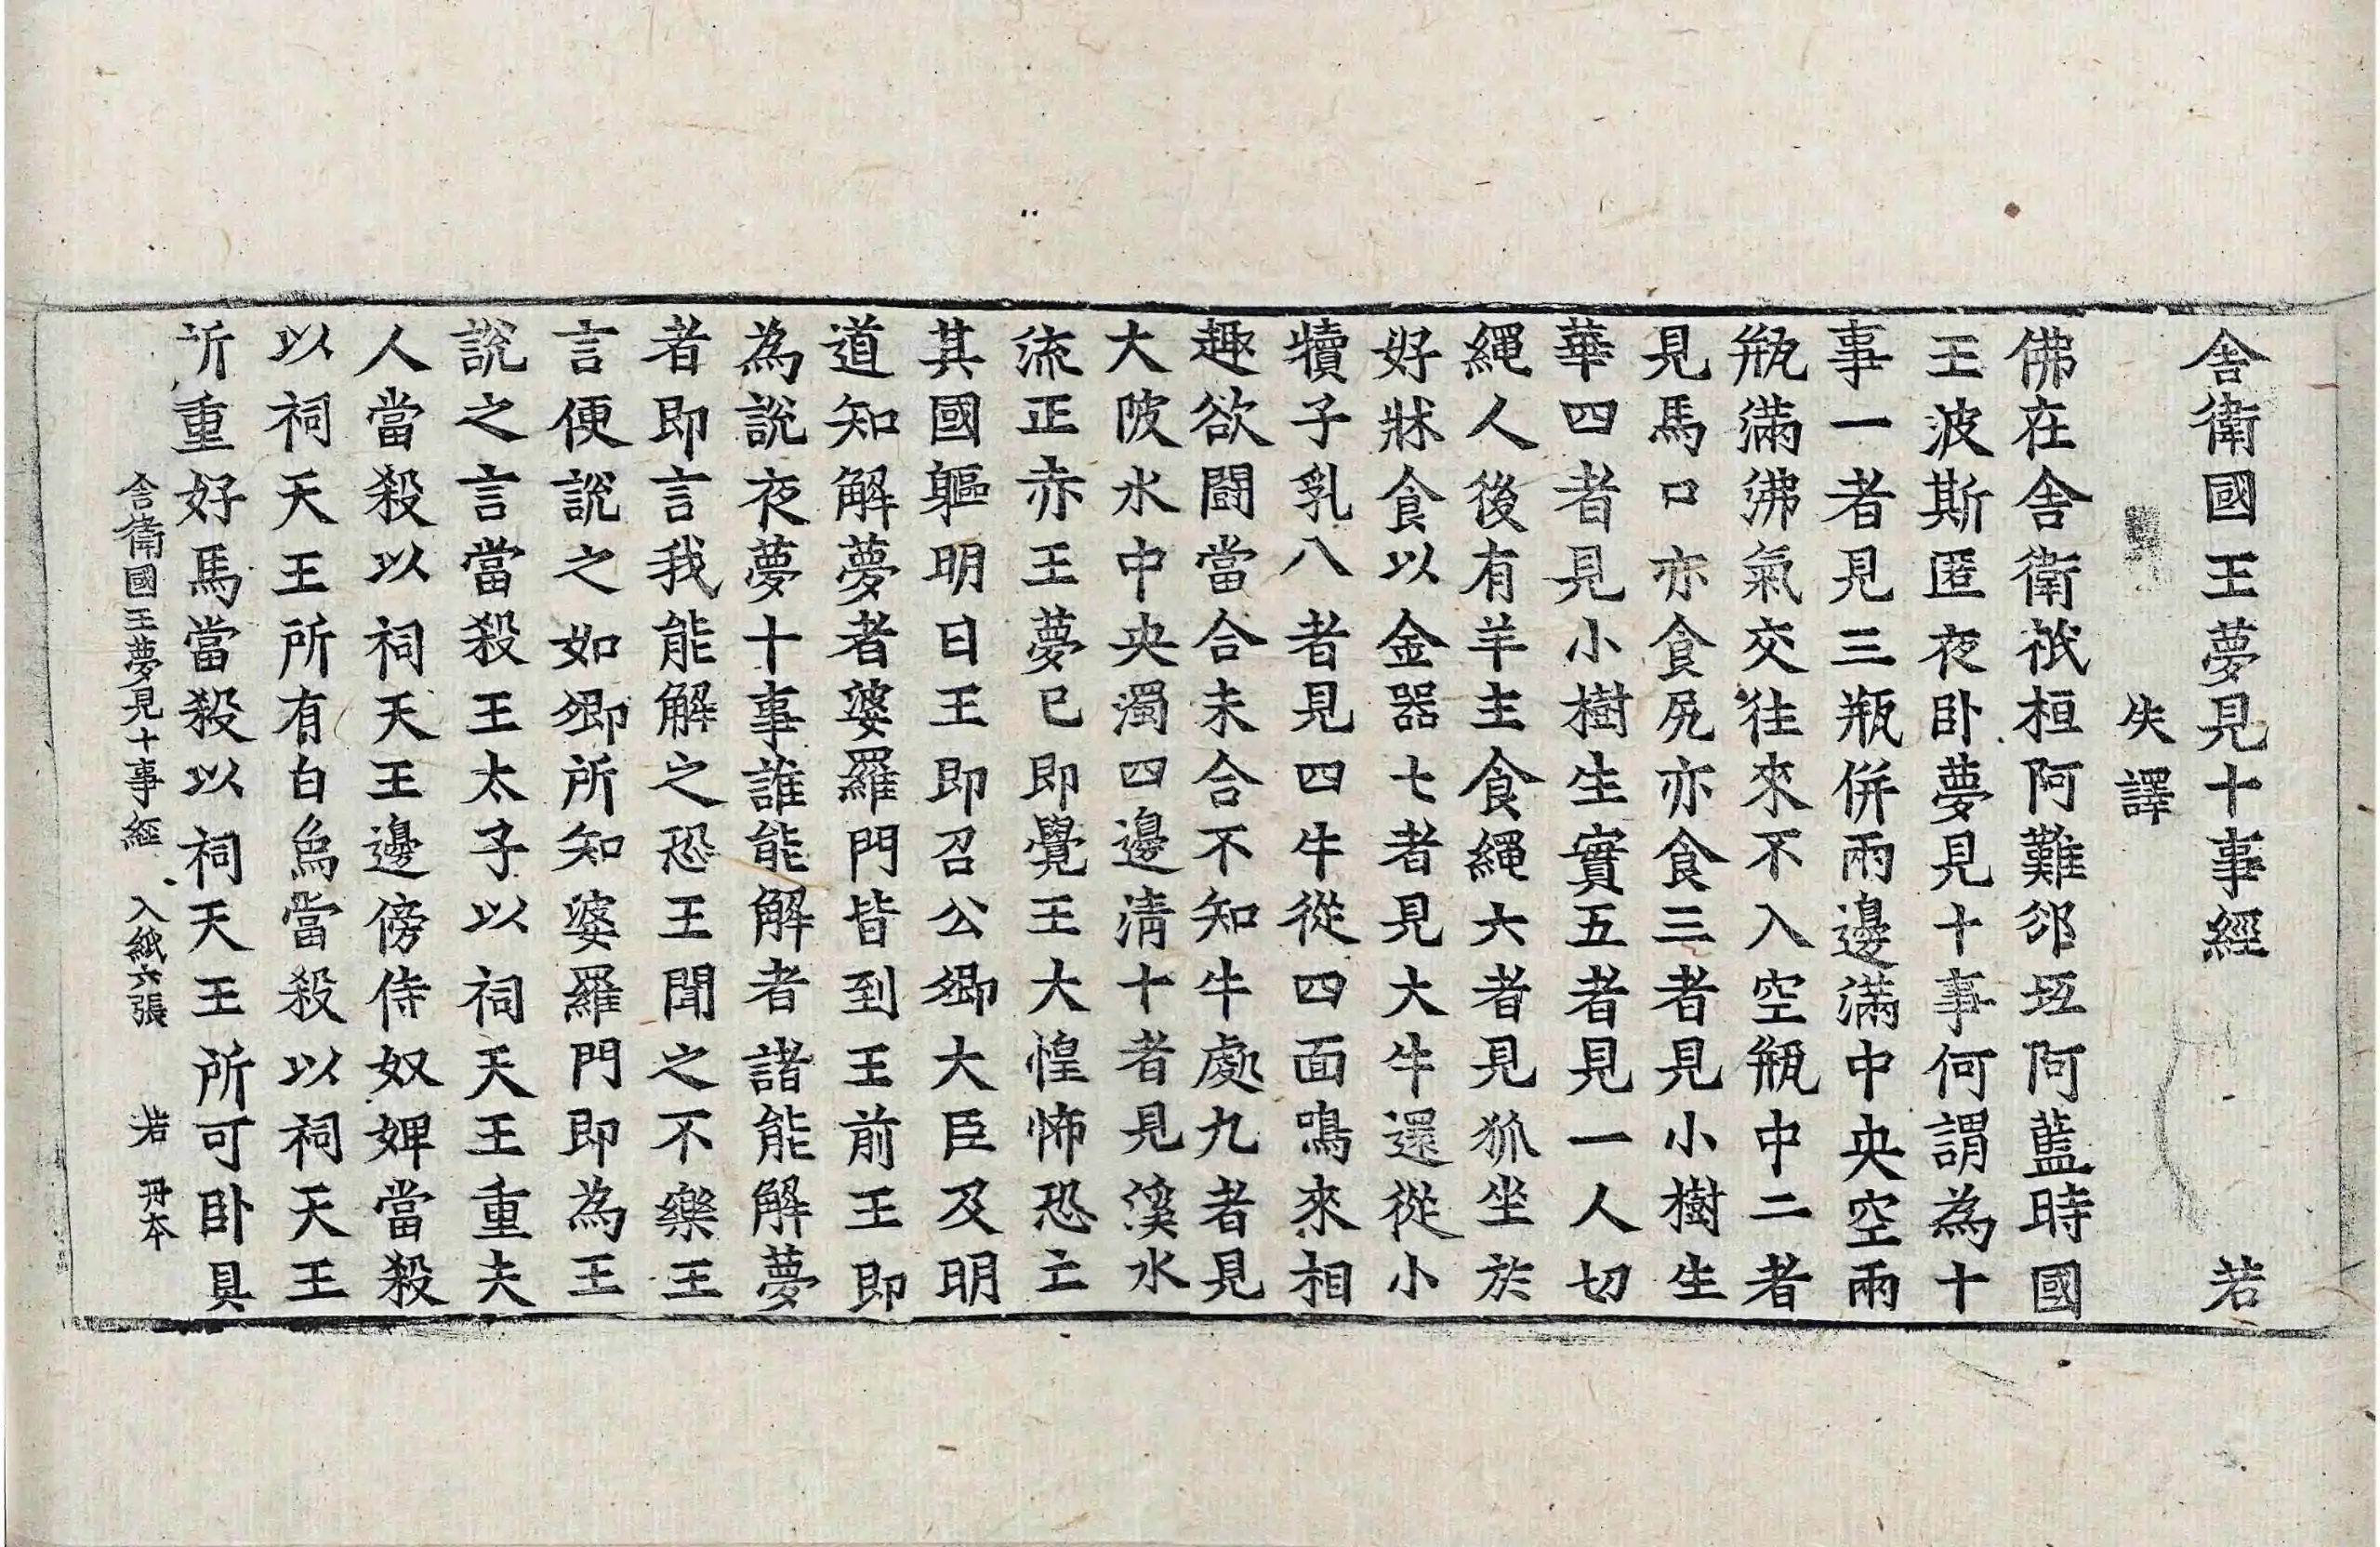 舎衛國王夢見十事經　若
失譯
佛在舎衛祇桓阿難邠坻阿藍時國
王波斯匿夜卧夢見十事何謂為十
事一者見三瓶併兩邊滿中央空兩
瓶滿沸氣交往來不入空瓶中二者
見馬口亦食尻亦食三者見小樹生
華四者見小樹生實五者見一人切
繩人後有羊主食繩六者見狐坐於
好牀食以金器七者見大牛還從小
犢子乳八者見四牛從四面鳴來相
趣欲鬪當合未合不知牛處九者見
大陂水中央濁四邊淸十者見溪水
流正赤王夢已即覺王大惶怖恐亡
其國軀明日王即召公卿大臣及明
道知解夢者婆羅門皆到王前王即
為說夜夢十事誰能解者諸能解夢
者即言我能解之恐王聞之不樂王
言便說之如卿所知婆羅門即為王
說之言當殺王太子以祠天王重夫
人當殺以祠天王邊傍侍奴婢當殺
以祠天王所有白烏當殺以祠天王
所重好馬當殺以祠天王所可卧具
舎衛國王夢見十事經　入紙六張　若　丹本